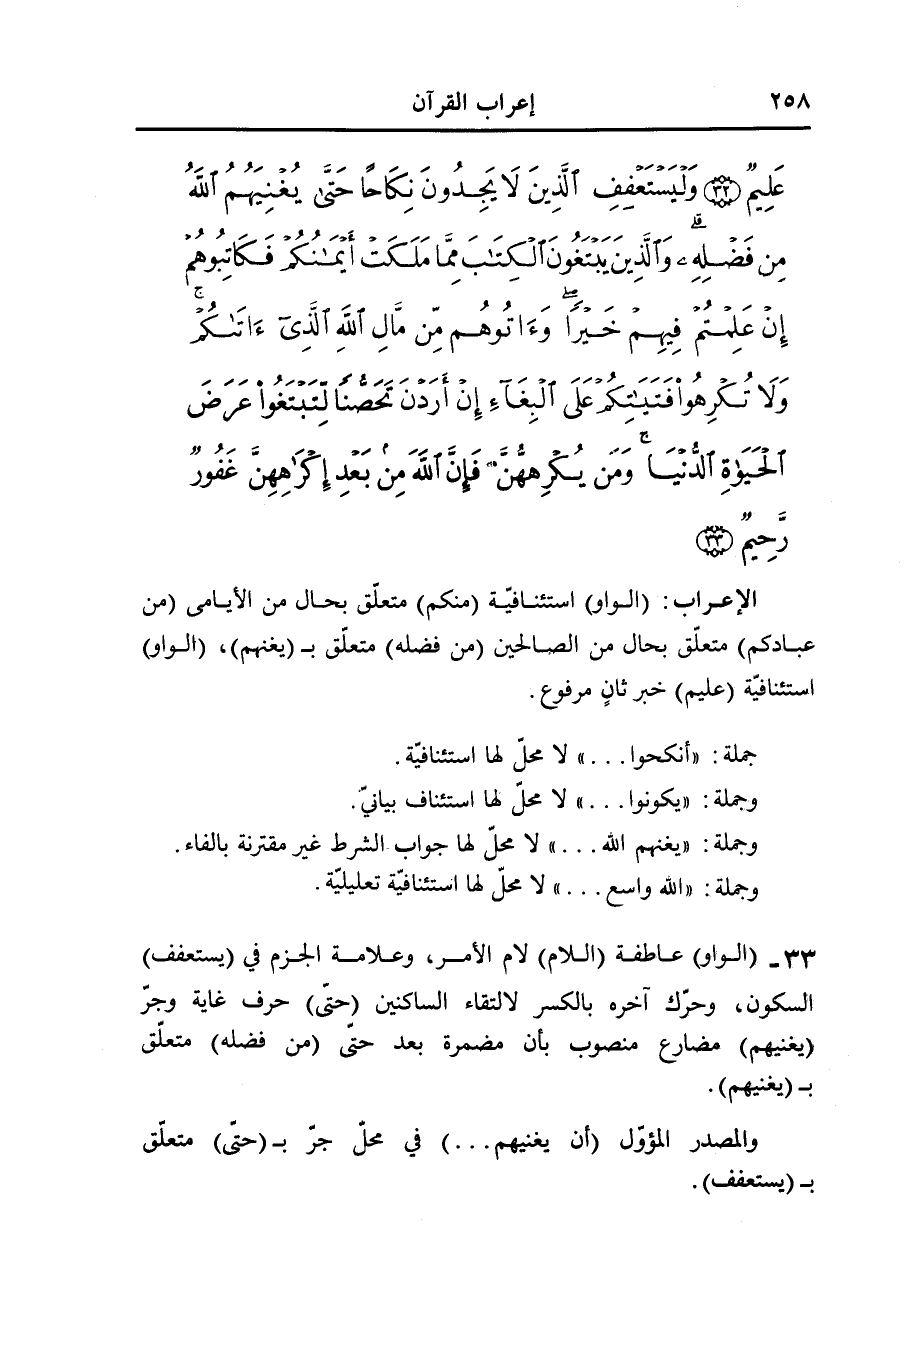 ٢٥٨ إعراب القرآن
عَلِيمٌ ﴿٣٢﴾ وَلْيَسْتَعْفِفِ ٱلَّذِينَ لَا يَجِدُونَ نِكَاحًا حَتَّىٰ يُغْنِيَهُمُ ٱللَّهُ
مِن فَضْلِهِۦ ۗ وَٱلَّذِينَ يَبْتَغُونَ ٱلْكِتَٰبَ مِمَّا مَلَكَتْ أَيْمَٰنُكُمْ فَكَاتِبُوهُمْ
إِنْ عَلِمْتُمْ فِيهِمْ خَيْرًا ۖ وَءَاتُوهُم مِّن مَّالِ ٱللَّهِ ٱلَّذِىٓ ءَاتَىٰكُمْ ۚ
وَلَا تُكْرِهُوا۟ فَتَيَٰتِكُمْ عَلَى ٱلْبِغَآءِ إِنْ أَرَدْنَ تَحَصُّنًا لِّتَبْتَغُوا۟ عَرَضَ
ٱلْحَيَوٰةِ ٱلدُّنْيَا ۚ وَمَن يُكْرِههُّنَّ فَإِنَّ ٱللَّهَ مِنۢ بَعْدِ إِكْرَٰهِهِنَّ غَفُورٌ
رَّحِيمٌ ﴿٣٣﴾
الإعراب: (الواو) استئنافيّة (منكم) متعلّق بحال من الأيامى (من
عبادكم) متعلّق بحال من الصالحين (من فضله) متعلّق بـ (يغنهم)، (الواو)
استئنافيّة (عليم) خبر ثانٍ مرفوع.
جملة: «أنكحوا...» لا محلّ لها استئنافيّة.
وجملة: «يكونوا...» لا محلّ لها استئناف بيانيّ.
وجملة: «يغنهم الله...» لا محلّ لها جواب الشرط غير مقترنة بالفاء.
وجملة: «الله واسع...» لا محلّ لها استئنافيّة تعليليّة.
٣٣ ـ (الواو) عاطفة (اللام) لام الأمر، وعلامة الجزم في (يستعفف)
السكون، وحرّك آخره بالكسر لالتقاء الساكنين (حتّى) حرف غاية وجرّ
(يغنيهم) مضارع منصوب بأن مضمرة بعد حتّى (من فضله) متعلّق
بـ (يغنيهم).
والمصدر المؤوّل (أن يغنيهم...) في محلّ جرّ بـ (حتّى) متعلّق
بـ (يستعفف).